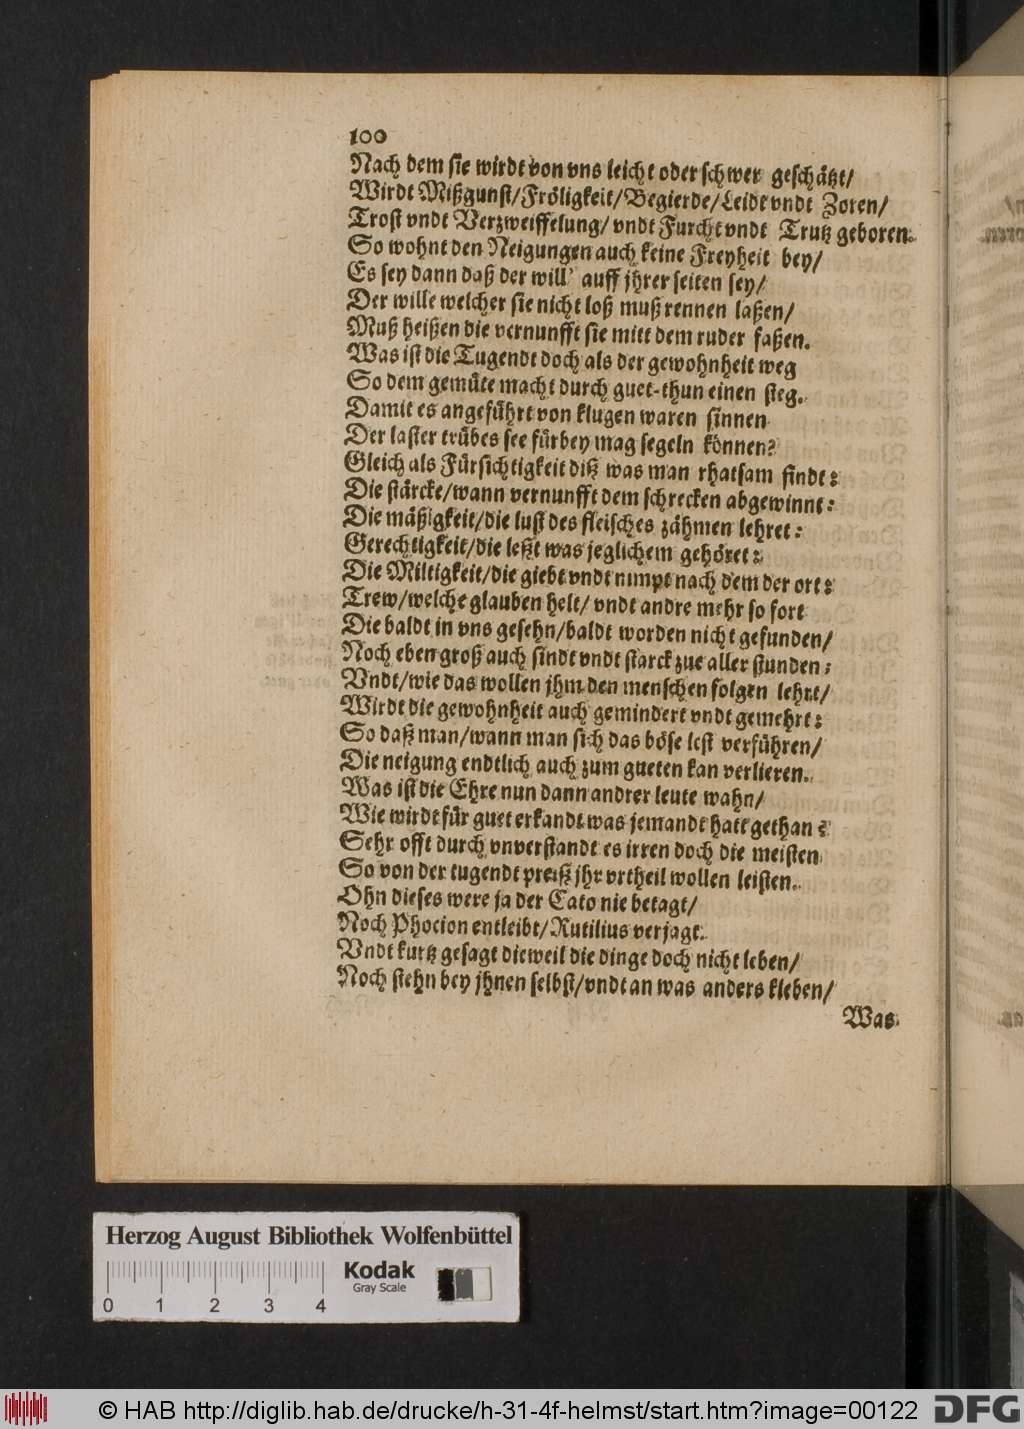 100
Nach dem sie wirdt von vns leicht oder schwer geschätzt/
Wirdt Mißgunst/Fröligkeit/Begierde/Leidt vndt Zoren/
Trost vndt Verzweiffelung/ vndt Furcht vndt Trutz geboren.
So wohnt den Neigungen auch keine Freyheit bey/
Es sey dann daß der will' auff jhrer seiten sey/
Der wille welcher sie nicht loß muß rennen laßen/
Muß heißen die vernunfft sie mitt dem ruder faßen.
Was ist die Tugendt doch als der gewohnheit weg
So dem gemüte macht durch guet-thun einen steg.
Damit es angeführt von klugen waren sinnen
Der laster trübes see fürbey mag segeln können?
Gleich als Fürsichtigkeit diß was man rhatsam findt:
Die stärcke/wann vernunfft dem schrecken abgewinnt:
Die mäßigkeit/die lust des fleisches zähmen lehret:
Gerechtigkeit/die leßt was jeglichem gehöret:
Die Miltigkeit/die giebt vndt nimpt nach dem der ort:
Trew/welche glauben helt/ vndt andre mehr so fort
Die baldt in vns gesehn/baldt worden nicht gefunden/
Noch eben groß auch sindt vndt starck zue aller stunden:
Vndt/wie das wollen jhm den menschen folgen lehrt/
Wirdt die gewohnheit auch gemindert vndt gemehrt:
So daß man/wann man sich das böse lest verführen/
Die neigung endtlich auch zum gueten kan verlieren.
Was ist die Ehre nun dann andrer leute wahn/
Wie wirdt für guet erkandt was jemandt hatt gethan?
Sehr offt durch vnverstandt es irren doch die meisten
So von der tugendt preiß jhr vrtheil wollen leisten.
Ohn dieses were ja der Cato nie betagt/
Noch Phocion entleibt/Rutilius verjagt.
Vndt kurtz gesagt dieweil die dinge doch nicht leben/
Noch stehn bey jhnen selbst/vndt an was anders kleben/
Was
Herzog August Bibliothek Wolfenbüttel
Kodak
Gray Scale
0 1 2 3 4
© HAB http://diglib.hab.de/drucke/h-31-4f-helmst/start.htm?image=00122
DFG